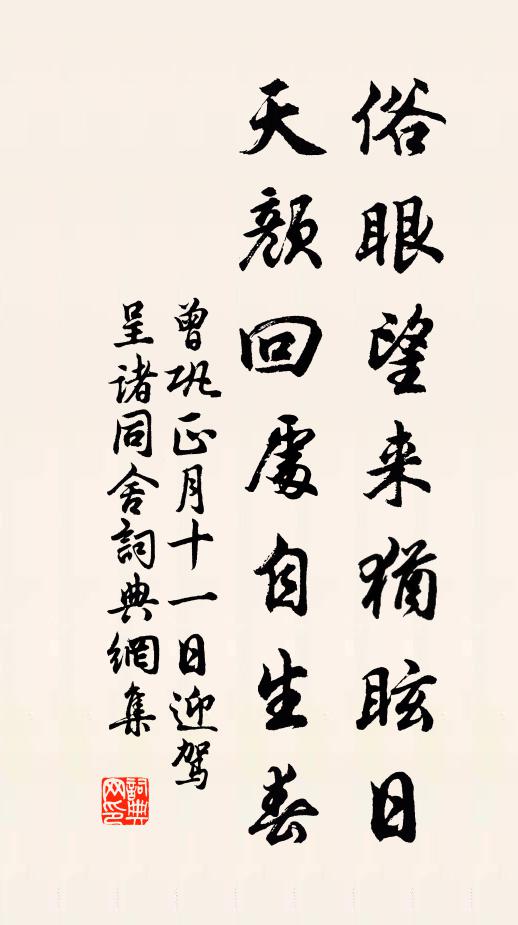 俗眼望来猶眩日
天顏回處自生春
曾巩正月十一日迎驾
呈诸同舍詞典網集
詞典网印